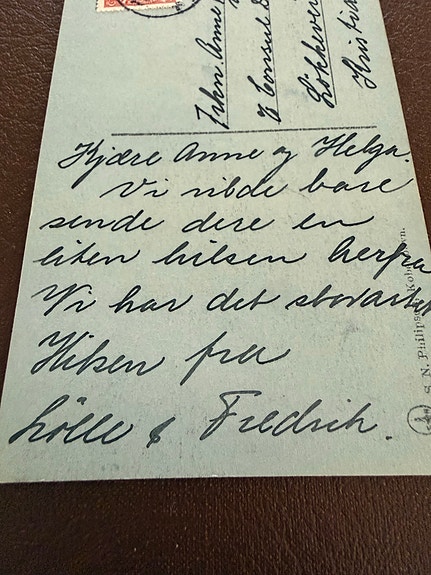 Frkn. Anne
Lökkevei
Kristia
Kjære Anne og Helga.
Vi vilde bare
sende dere en
liten hilsen herfra
Vi har det storartet
Hilsen fra
Lölle & Fredrik.
S. N. Philipsen, Kobenhavn.